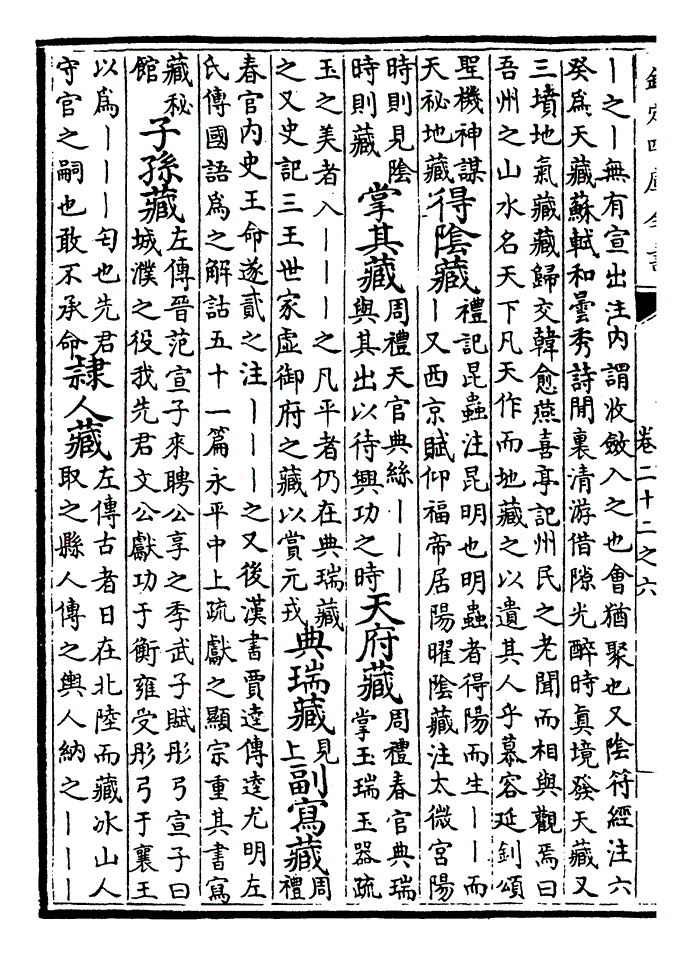 欽定四庫全書
卷二十二之六
丨之丨無有宣出注内謂收斂入之也會猶聚也又陰符經注六
癸爲天藏蘇軾和曇秀詩閒裏清游借隙光醉時眞境發天藏又
三墳地氣藏藏歸交韓愈燕喜亭記州民之老聞而相與觀焉曰
吾州之山水名天下凡天作而地藏之以遺其人乎慕容延釗頌
聖機神謀
天祕地藏
得陰藏
禮記昆蟲注昆明也明蟲者得陽而生丨丨而
丨又西京賦仰福帝居陽曜陰藏注太微宮陽
時則見陰
時則藏
掌其藏
周禮天官典絲丨丨丨
與其出以待興功之時
天府藏
周禮春官典瑞
掌玉瑞玉器疏
玉之美者入丨丨丨之凡平者仍在典瑞藏
之又史記三王世家虛御府之藏以賞元戎
典瑞藏
見
上
副寫藏
周
禮
春官内史王命遂貳之注丨丨丨之又後漢書賈逵傳逵尤明左
氏傳國語爲之解詁五十一篇永平中上疏獻之顯宗重其書寫
藏秘
館
子孫藏
左傳晉范宣子來聘公享之季武子賦彤弓宣子曰
城濮之役我先君文公獻功于衡雍受彤弓于襄王
以爲丨丨丨匄也先君
守官之嗣也敢不承命
隷人藏
左傳古者日在北陸而藏冰山人
取之縣人傳之輿人納之丨丨丨